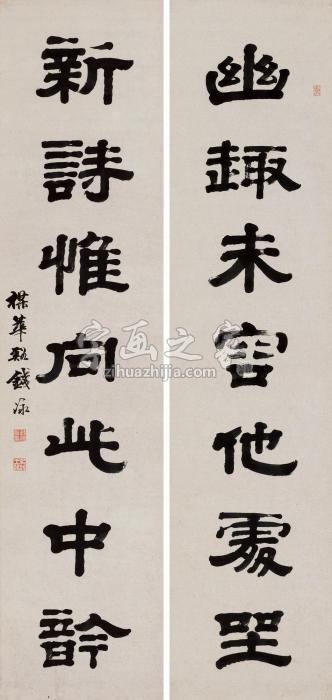 幽趣未容他處
新詩惟向此中䪩
楳華谿錢泳
字画之家
zihuazhijia.com